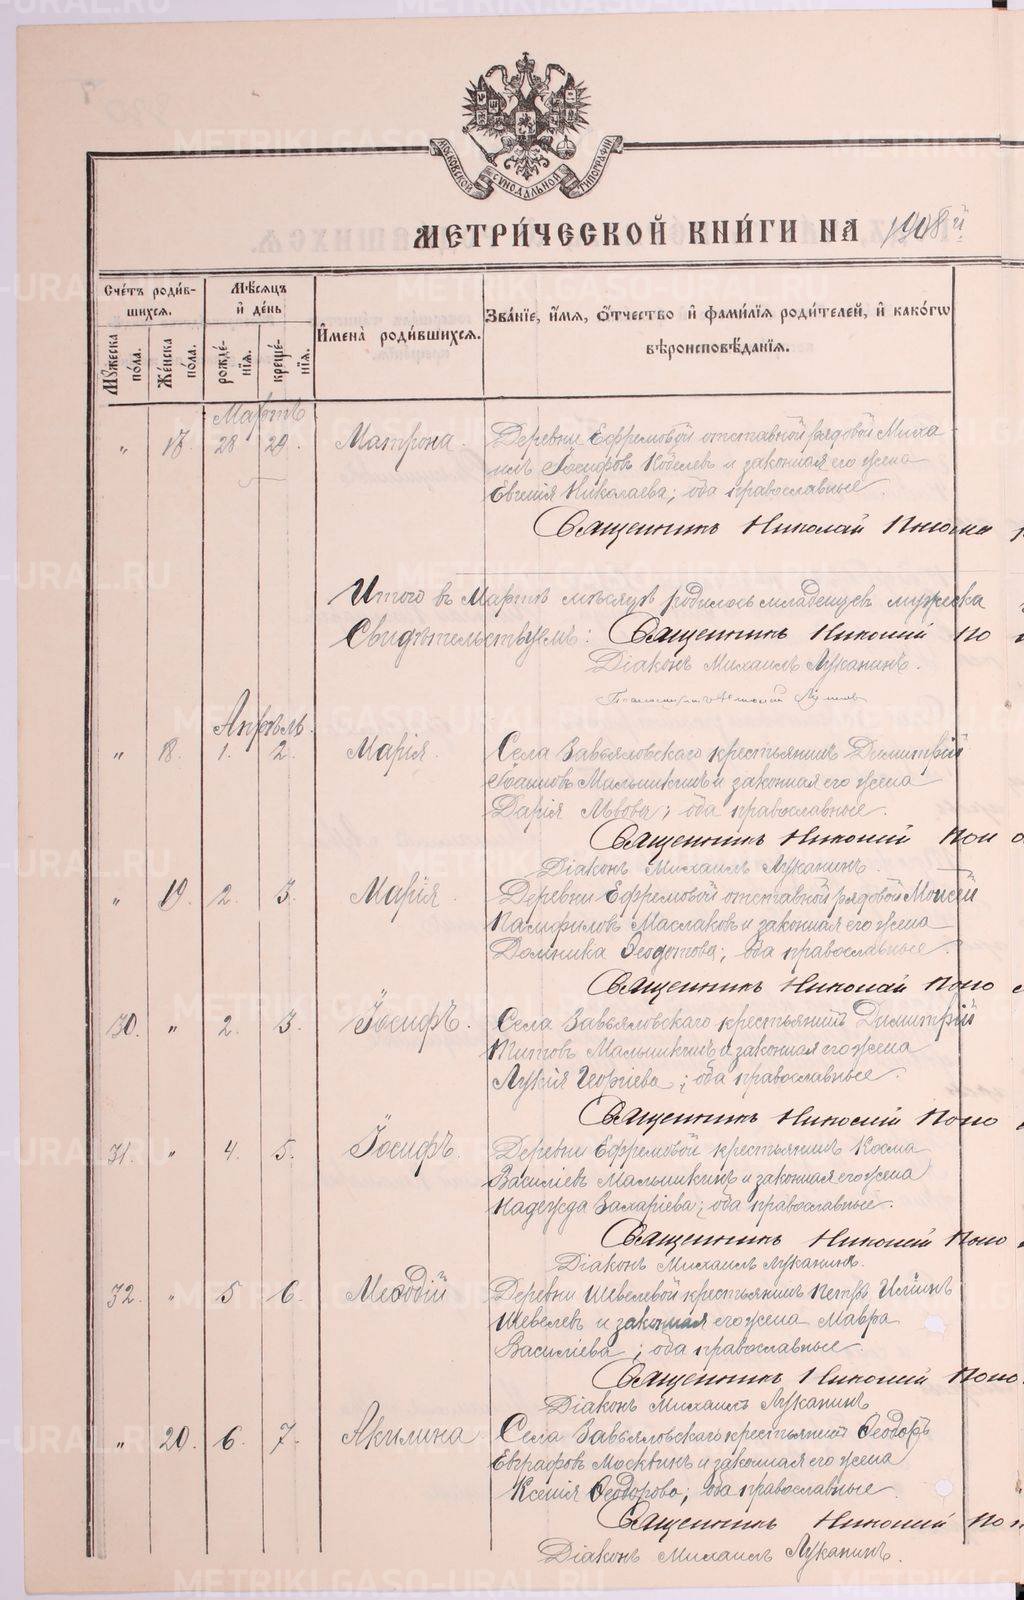 МОСКОВСКОЙ СѴНОДАЛЬНОЙ ТИПОГРАФІИ
МЕТРИ́ЧЕСКОЙ КНИ́ГИ НА 1908й
Сче́тъ роди́вшихся.
Мѣ́сяцъ и҆ де́нь
И҆мена̀ роди́вшихся.
Зва́нїе, и҆́мя, ѻ҆́тчество и҆ фами́лїя роди́телей, и҆ како́гѡ
вѣроисповѣ́данїя.
Мꙋ́жеска по́ла.
Же́нска по́ла.
рожде́нїя.
креще́нїя.
Мартъ
„ 17. 28 29. Матрона. Деревни Ефремовой отставной рядовой Миха-
илъ Іосифовъ Кобелевъ и законная его жена
Евгенія Николаева; оба православные.
Священникъ Николай
Итого въ Мартѣ мѣсяцѣ родилось младенцевъ мужеска
Свидѣтельствуемъ: Священникъ Николай По
Діаконъ Михаилъ Луканинъ.
Апрѣль.
„ 18. 1. 2. Марія. Села Завьяловскаго крестьянинъ Димитрій
Іоанновъ Малышкинъ и законная его жена
Дарія Львова; оба православные.
Священникъ Николай Поп
Діаконъ Михаилъ Луканинъ.
„ 19. 2. 3. Марія. Деревни Ефремовой отставной рядовой Моисей
Памфиловъ Маслаковъ и законная его жена
Домника Ѳеодотова; оба православные.
Священникъ Николай Попо
30. „ 2. 3. Іосифъ. Села Завьяловскаго крестьянинъ Димитрій
Титовъ Малышкинъ и законная его жена
Лукія Георгіева; оба православные.
Священникъ Николай Попо
31. „ 4. 5. Іосифъ. Деревни Ефремовой крестьянинъ Косма
Василіевъ Малышкинъ и законная его жена
Надежда Захаріева; оба православные.
Священникъ Николай Попо
Діаконъ Михаилъ Луканинъ.
32. „ 5 6. Меѳодій Деревни Шевелевой крестьянинъ Петръ Ильинъ
Шевелевъ и законная его жена Мавра
Василіева; оба православные.
Священникъ Николай Попо
Діаконъ Михаилъ Луканинъ
„ 20. 6. 7. Акилина Села Завьяловскаго крестьянинъ Ѳеодоръ
Евграфовъ Москвинъ и законная его жена
Ксенія Ѳеодорова; оба православные.
Священникъ Николай Поп
Діаконъ Михаилъ Луканинъ.
METRIKI.GASO-URAL.RU